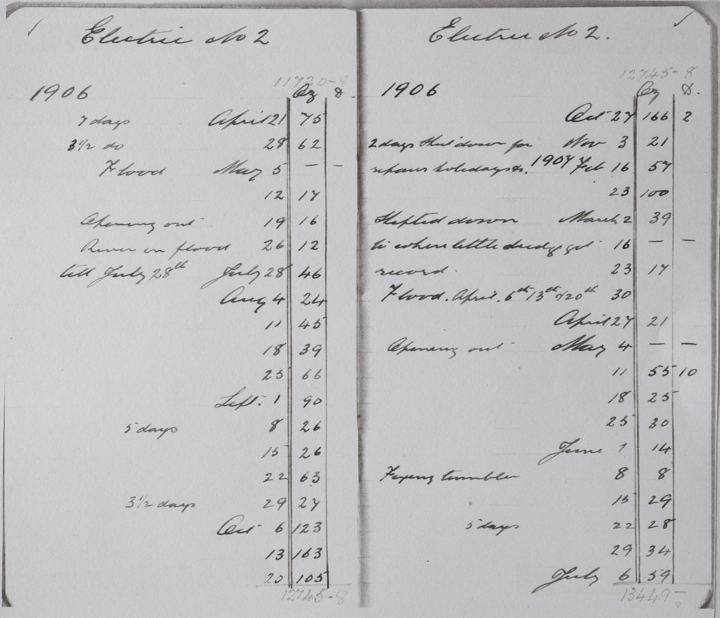 Electric No 2
11720-8
1906 Oz D.
7 days April 21 75
3½ do 28 62
Flood May 5 — —
12 17
Opening out 19 16
River in flood 26 12
till July 28th July 28 46
Aug 4 24
11 45
18 39
25 66
Sept. 1 90
5 days 8 26
15 26
22 63
3½ days 29 27
Oct 6 123
13 163
20 105
12745-8
Electric No 2.
12745-8
1906 Oz D.
Oct 27 166 2
2 days shut down for Nov 3 21
repairs holidays &c. 1907 Feb 16 57
23 100
Shifted down March 2 39
to where little dredge got 16 — —
record. 23 17
Flood. April. 6th 13th &20th 30
April 27 21
Opening out May 4 — —
11 55 10
18 25
25 30
June 1 14
Fixing tumbler 8 8
15 29
5 days 22 28
29 34
July 6 59
13449-